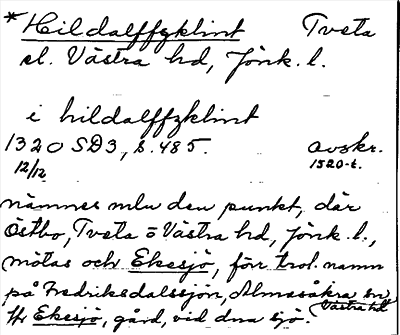 *Hildalffzklint Tveta
el. Västra hd, Jönk. l.
i hildalffzklint
1320 SD3, s. 485. avskr.
12/12. 1520-t.
nämnes mlu den punkt, där
Östbo, Tveta o Västra hd, Jönk. l.,
mötas och Ekesjö, förr trol. namn
på Fredriksdalssjön, Almesåkra sn
Västra hd
Hr Ekesjö, gård, vid dna sjö.